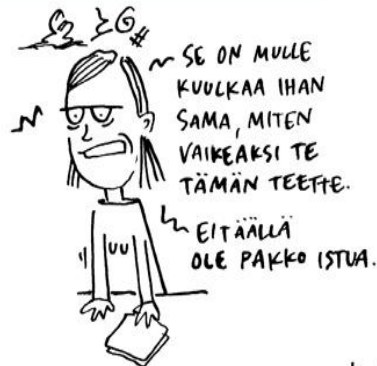 SE ON MULLE
KUULKAA IHAN
SAMA, MITEN
VAIKEAKSI TE
TÄMÄN TEETTE.
EI TÄÄLLÄ
OLE PAKKO ISTUA.